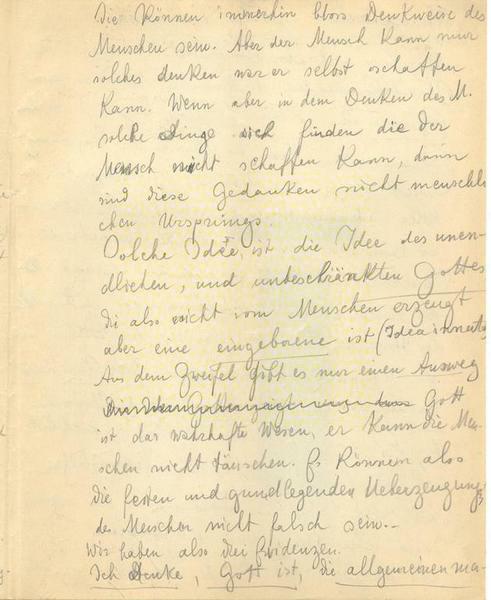 Die können immerhin bloss Denkweise des
Menschen sein. Aber der Mensch kann nur
solches denken was er selbst schaffen
kann. Wenn aber in dem Denken des M.
solche Dinge sich finden die der
Mensch nicht schaffen kann, dann
sind diese Gedanken nicht menschli
chen Ursprungs.
Solche Idee, ist die Idee des unen-
dlichen, und unbeschränkten Gottes
die also nicht vom Menschen erzeugt
aber eine eingeborene ist (Idea innata)
Aus dem Zweifel gibt es nur einen Ausweg
Gott
ist das wahrhafte Wesen, er kann die Men-
schen nicht täuschen. Es können also
die festen und grundlegenden Ueberzeugung
des Menschen nicht falsch sein.-
Wir haben also drei Evidenzen.
Ich denke, Gott ist, die allgemeinen ma-